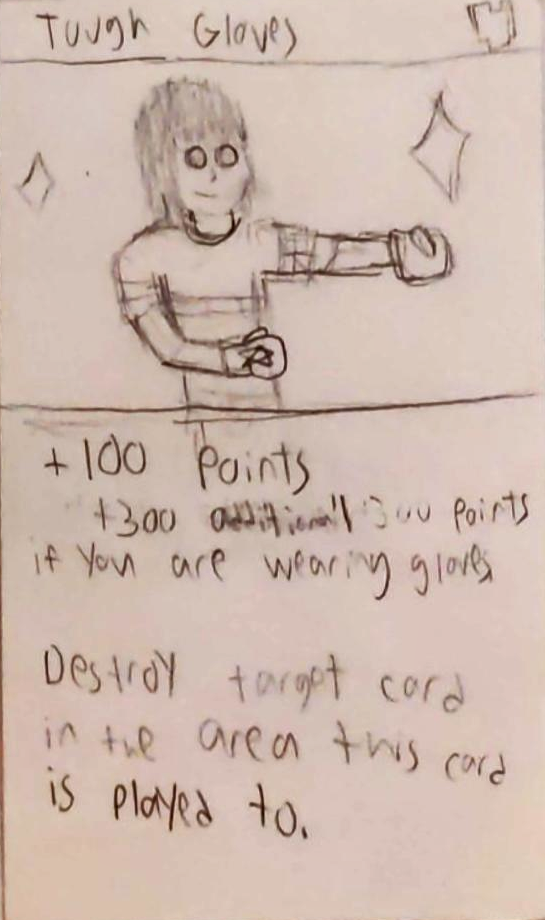 Tough Gloves
+100 Points
+300 additional 300 Points
if you are wearing gloves
Destroy target card
in the area this card
is played to.